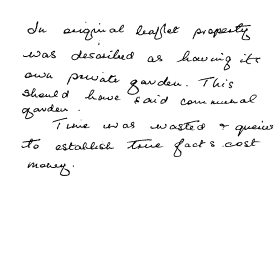 In original leaflet property
was described as having its
own private garden. This
should have said communal
garden.
Time was wasted +
to establish true facts cost
money.